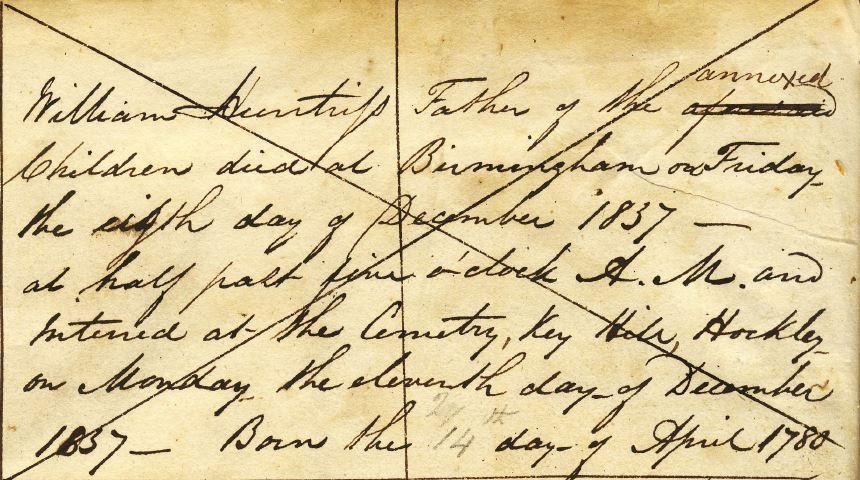 annexed
William Huntriss Father of the
Children died at Birmingham on Friday
the eigth day of December 1837 —
at half past five o'clock A. M. and
Interred at the Cemetry, Key Hill, Hockley
on Monday the eleventh day of December
27 th
1837 — Born the 14 day of April 1780